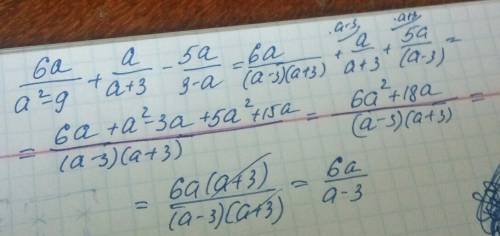 ·a-3 ·a+3
6a/(a²-9) + a/(a+3) - 5a/(9-a) = 6a/((a-3)(a+3)) + a/(a+3) + 5a/(a-3) =
= (6a+a²-3a+5a²+15a)/((a-3)(a+3)) = (6a²+18a)/((a-3)(a+3)) =
= 6a(a+3)/((a-3)(a+3)) = 6a/(a-3)